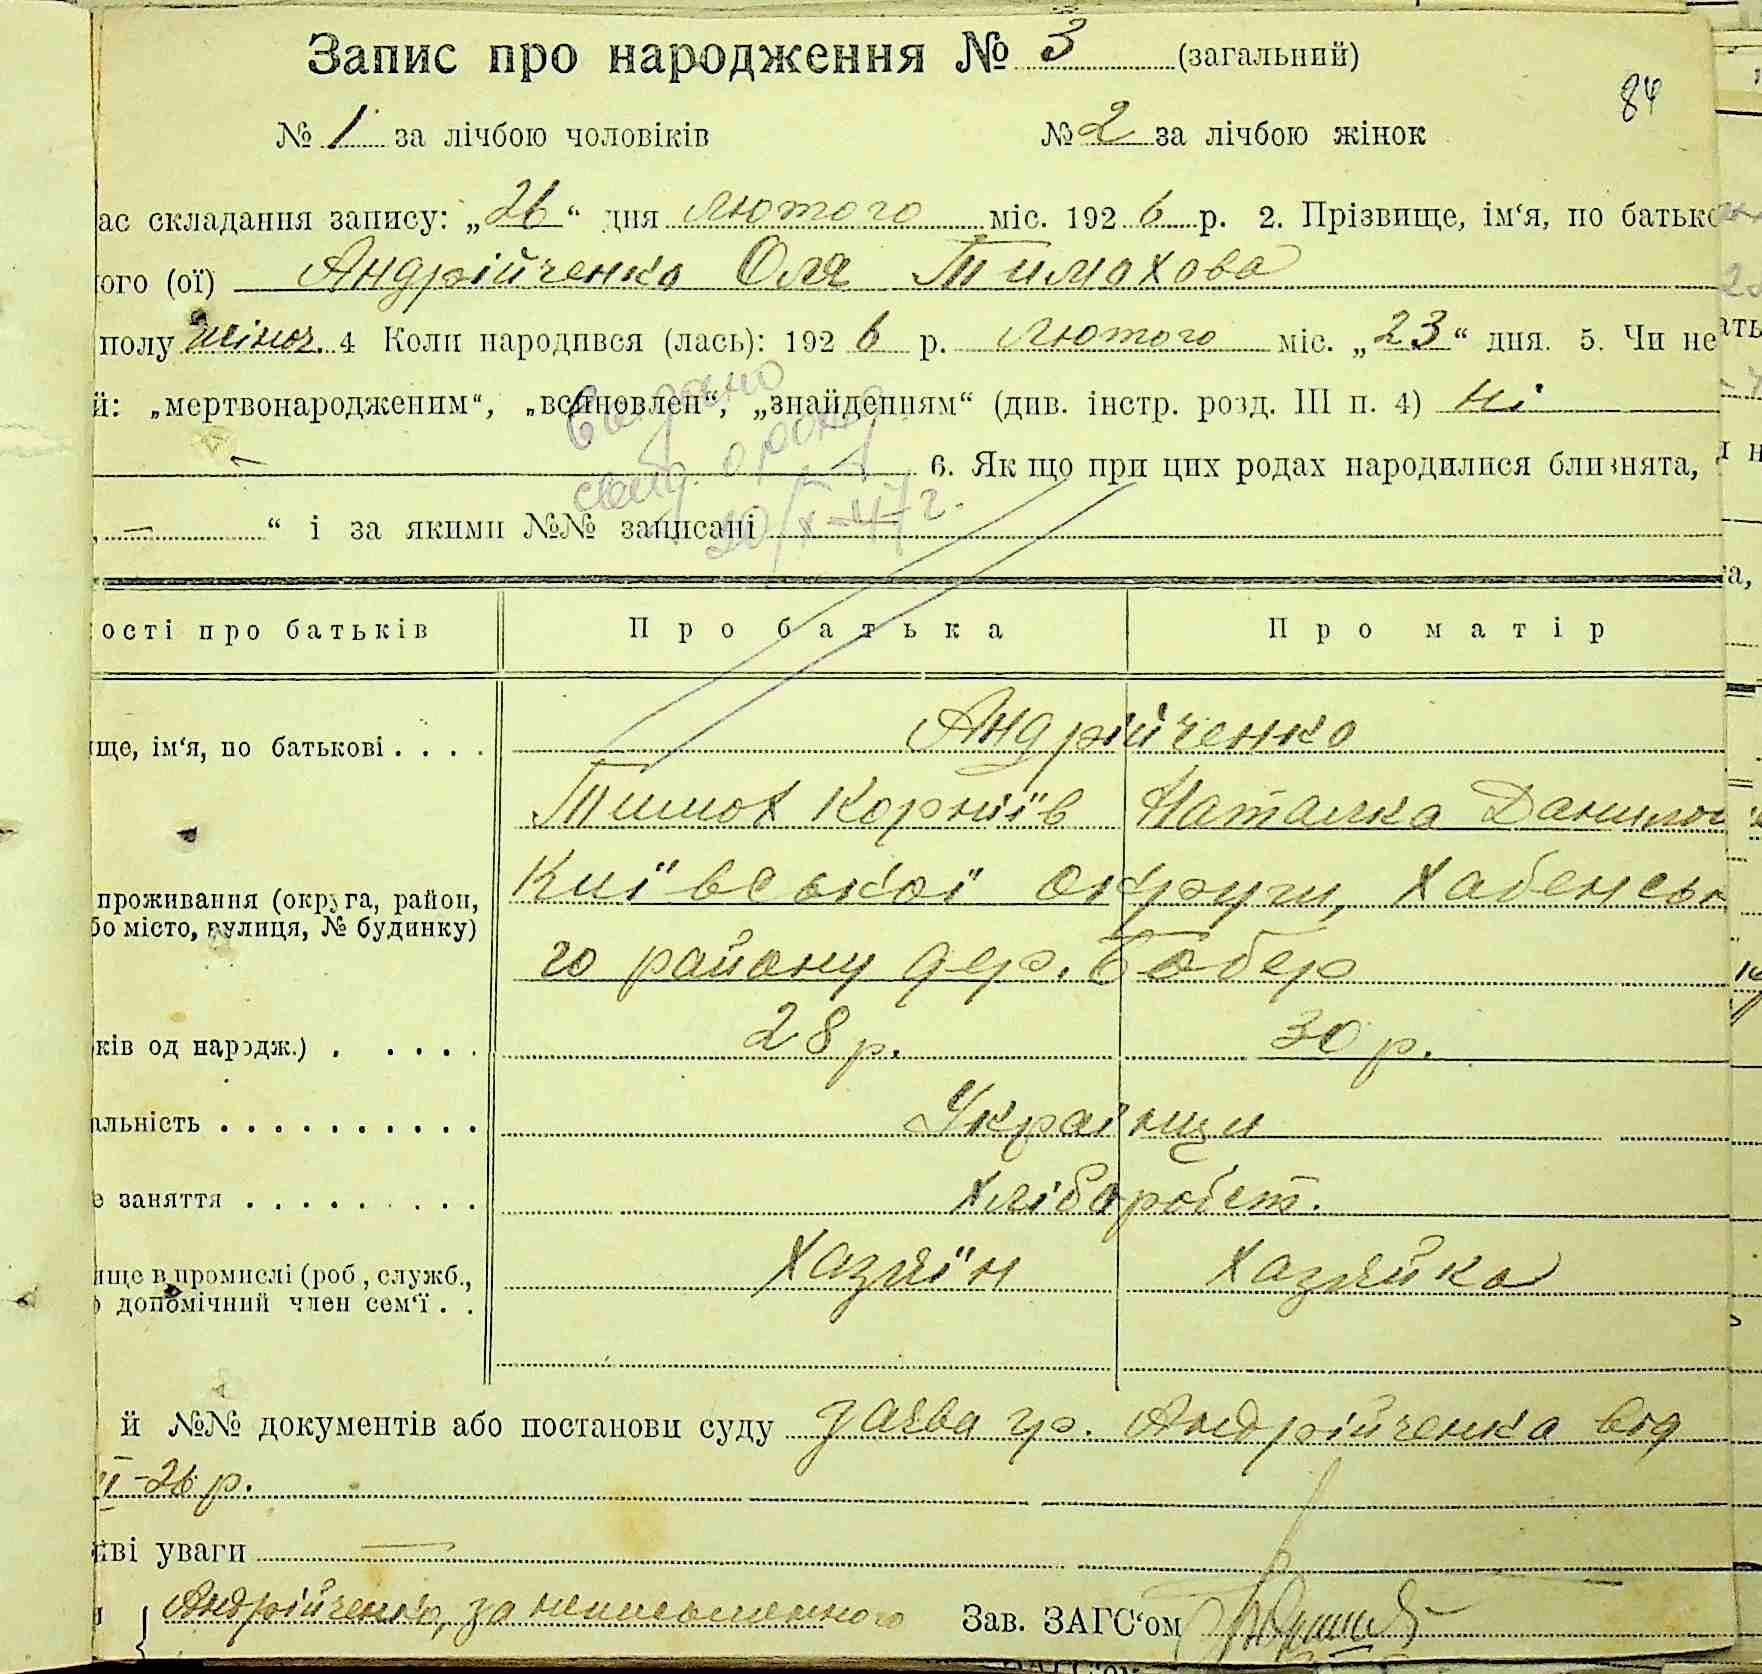 Запис про народження № 3 (загальний)
84
№ 1 за лічбою чоловіків № 2 за лічбою жінок
ас складання запису: „26“ дня лютого міс. 1926 р. 2. Прізвище, ім‘я, по батько
ого (ої) Андрійченко Оля Тимохова
полу жіноч. 4 Коли народився (лась): 1926 р. лютого міс. „23“ дня. 5. Чи не
й: „мертвонародженим“, „всиновлен“, „знайденням“ (див. інстр. розд. III п. 4) ні
Выдано
6. Як що при цих родах народилися близнята,
“ і за якими №№ записані
ості про батьків Про батька Про матір
ще, ім‘я, по батькові . . . . Андрійченко
Тимох Корніїв Наталка Данилов
проживання (округа, район, Київської округи, Хабенськ
бо місто, вулиця, № будинку)
го району дер. Бобер
ків од народж.) . . . . . 28 р. 30 р.
альність . . . . . . . . . . . Українци
е заняття . . . . . . . . . Хлібаробст.
ище в промислі (роб, служб., Хазяїн Хазяйка
допомічний член сем‘ї . .
й №№ документів або постанови суду заява гр. Андрійченка від
II-26 р.
иві уваги
Андрійченко, за неписьменного Зав. ЗАГС‘ом